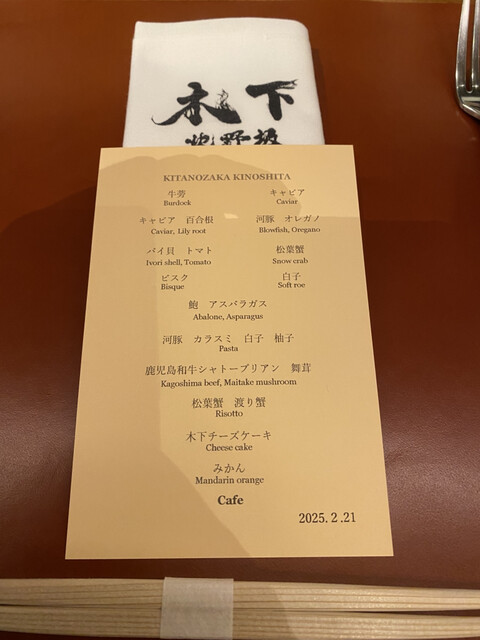 木下
北野坂
KITANOZAKA KINOSHITA
牛蒡 キャビア
Burdock Caviar
キャビア 百合根 河豚 オレガノ
Caviar, Lily root Blowfish, Oregano
バイ貝 トマト 松葉蟹
Ivori shell, Tomato Snow crab
ビスク 白子
Bisque Soft roe
鮑 アスパラガス
Abalone, Asparagus
河豚 カラスミ 白子 柚子
Pasta
鹿児島和牛シャトーブリアン 舞茸
Kagoshima beef, Maitake mushroom
松葉蟹 渡り蟹
Risotto
木下チーズケーキ
Cheese cake
みかん
Mandarin orange
Cafe
2025. 2 .21